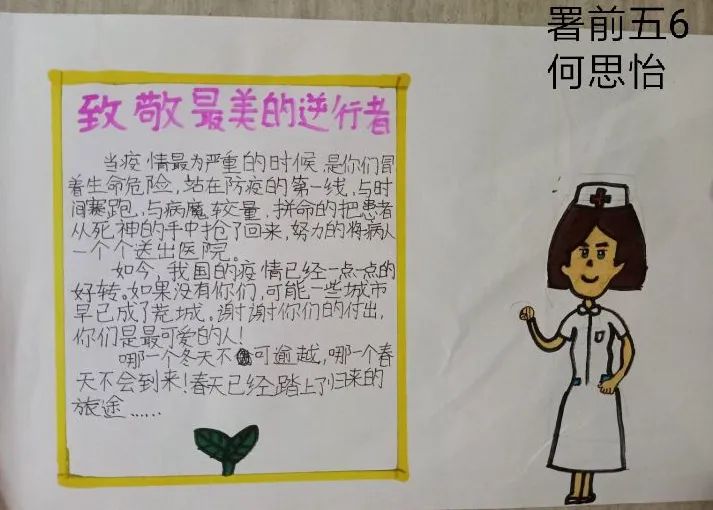 署前五6
何思怡
致敬最美的逆行者
当疫情最为严重的时候,是你们冒
着生命危险,站在防疫的第一线,与时
间赛跑,与病魔较量,拼命的把患者
从死神的手中抢了回来,努力的将病人
一个个送出医院。
如今,我国的疫情已经一点一点的
好转。如果没有你们,可能一些城市
早已成了荒城。谢谢你们的付出,
你们是最可爱的人!
哪一个冬天不可逾越,哪一个春
天不会到来!春天已经踏上了归来的
旅途……